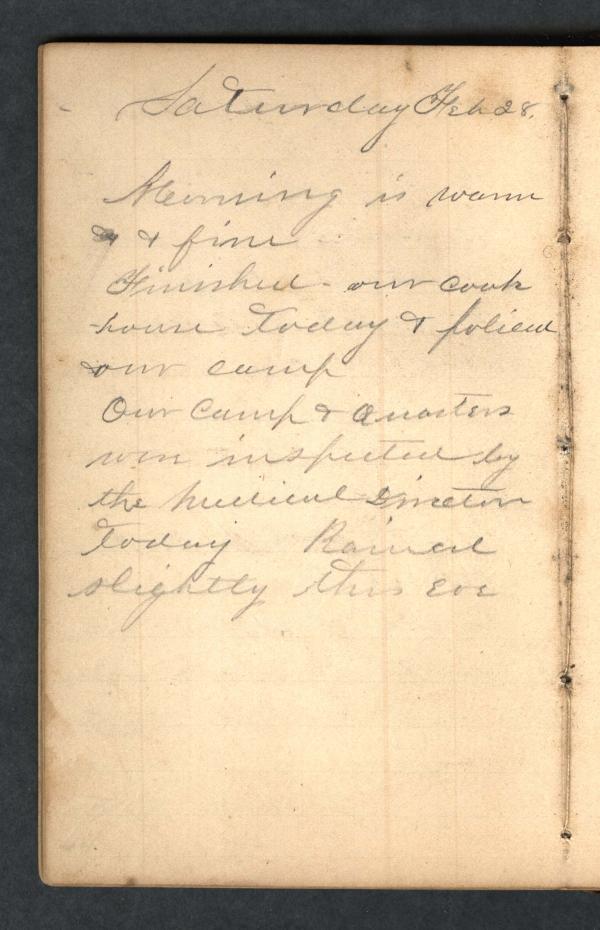 Saturday Feb 28.
Morning is warm
& & fine
Finished our cook
house today & policed
our camp
Our Camp & Quarters
were inspected by
the Medical Director
today Rained
slightly this eve